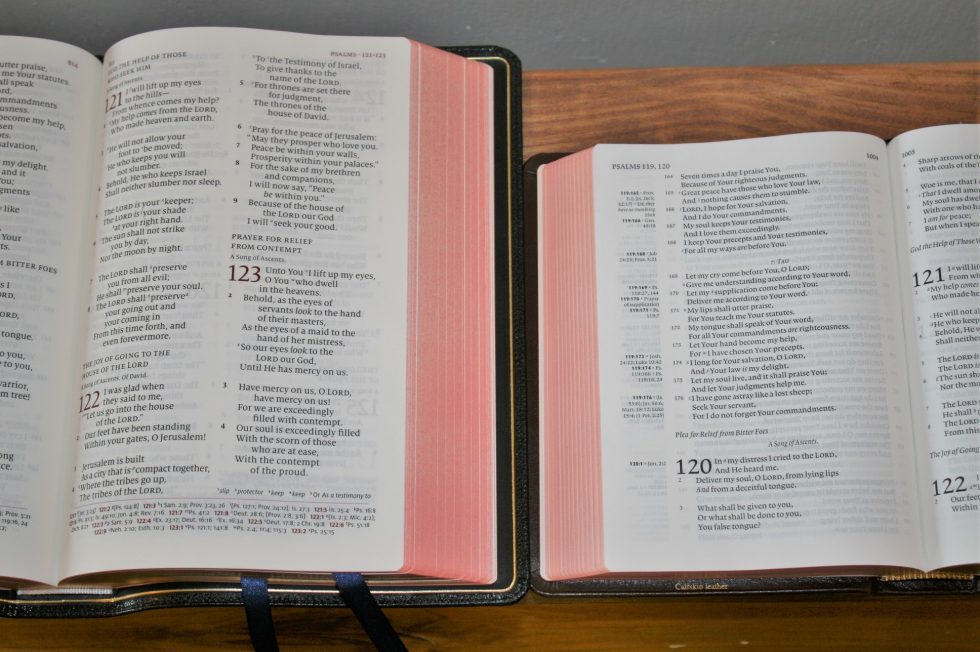 914
utter praise,
me Your statutes.
all speak
ord,
ommandments
ousness.
become my help,
osen
ts.
salvation,
my delight.
and it
You;
dgments
y like
Your
t
M BITTER FOES
s I
ORD,
tongue.
to you,
you,
arrior,
m tree!
PSALMS · 121–123
GOD THE HELP OF THOSE
WHO SEEK HIM
A Song of Ascents.
121 I will lift up my eyes
to the hills—
From whence comes my help?
My help comes from the LORD,
Who made heaven and earth.
He will not allow your
foot to be moved;
He who keeps you will
not slumber.
Behold, He who keeps Israel
Shall neither slumber nor sleep.
The LORD is your keeper;
The LORD is your shade
at your right hand.
The sun shall not strike
you by day,
Nor the moon by night.
The LORD shall preserve
you from all evil;
He shall preserve your soul.
The LORD shall preserve
your going out and
your coming in
From this time forth, and
even forevermore.
THE JOY OF GOING TO THE
HOUSE OF THE LORD
A Song of Ascents. Of David.
122 I was glad when
they said to me,
"Let us go into the house
of the LORD."
2 Our feet have been standing
Within your gates, O Jerusalem!
3 Jerusalem is built
As a city that is compact together,
4 Where the tribes go up,
The tribes of the LORD,
To the Testimony of Israel,
To give thanks to the
name of the LORD.
5 For thrones are set there
for judgment,
The thrones of the
house of David.
6 Pray for the peace of Jerusalem:
"May they prosper who love you.
7 Peace be within your walls,
Prosperity within your palaces."
8 For the sake of my brethren
and companions,
I will now say, "Peace
be within you."
9 Because of the house of
the LORD our God
I will seek your good.
PRAYER FOR RELIEF
FROM CONTEMPT
A Song of Ascents.
123 Unto You I lift up my eyes,
O You who dwell
in the heavens.
2 Behold, as the eyes of
servants look to the hand
of their masters,
As the eyes of a maid to the
hand of her mistress,
So our eyes look to the
LORD our God,
Until He has mercy on us.
3 Have mercy on us, O LORD,
have mercy on us!
For we are exceedingly
filled with contempt.
4 Our soul is exceedingly filled
With the scorn of those
who are at ease,
With the contempt
of the proud.
slip protector keep keep Or As a testimony to
PSALMS 119, 120
1004
164 Seven times a day I praise You,
Because of Your righteous judgments.
165 Great peace have those who love Your law,
And nothing causes them to stumble.
166 LORD, I hope for Your salvation,
And I do Your commandments.
167 My soul keeps Your testimonies,
And I love them exceedingly.
168 I keep Your precepts and Your testimonies,
For all my ways are before You.
ת TAU
169 Let my cry come before You, O LORD;
Give me understanding according to Your word.
170 Let my supplication come before You;
Deliver me according to Your word.
171 My lips shall utter praise,
For You teach me Your statutes.
172 My tongue shall speak of Your word,
For all Your commandments are righteousness.
173 Let Your hand become my help,
For I have chosen Your precepts.
174 I long for Your salvation, O LORD,
And Your law is my delight.
175 Let my soul live, and it shall praise You;
And let Your judgments help me.
176 I have gone astray like a lost sheep;
Seek Your servant,
For I do not forget Your commandments.
Plea for Relief from Bitter Foes
A Song of Ascents.
120:1 Jon. 2:2
120 In my distress I cried to the LORD,
And He heard me.
2 Deliver my soul, O LORD, from lying lips
And from a deceitful tongue.
3 What shall be given to you,
Or what shall be done to you,
You false tongue?
1005
4 Sharp arrows of th
With coals of the b
5 Woe is me, that I
That I dwell amo
6 My soul has dwel
With one who ha
7 I am for peace;
But when I speak
God the Help of Those W
121 I will lif
From w
2 My help come
Who made h
3 He will not al
He who keep
4 Behold, He w
Shall neithe
5 The LORD is
The LORD is
6 The sun sha
Nor the m
7 The LORD
He shall
8 The LORD
From this
The Joy of Going
122 I was
2 Our feet
Within
Calfskin leather